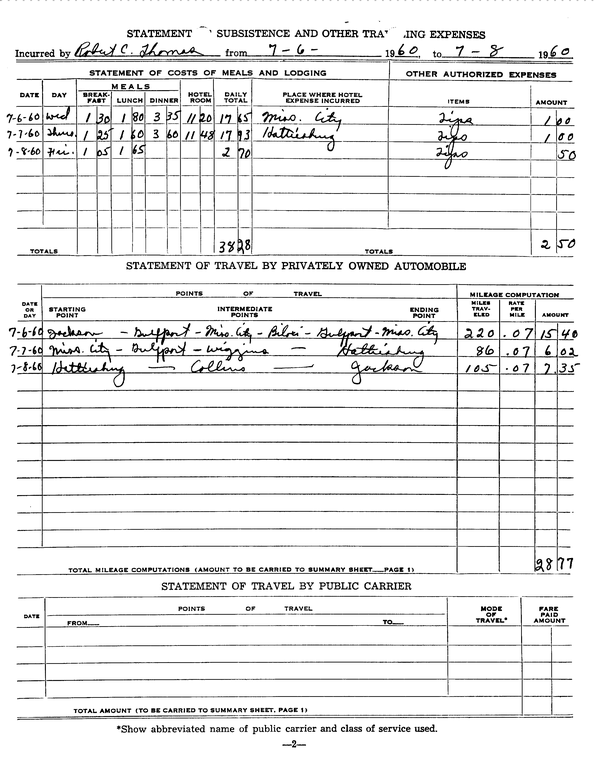 STATEMENT SUBSISTENCE AND OTHER TRA ING EXPENSES
Incurred by Robert C. Thomas from 7-6- 1960, to 7-8 1960
STATEMENT OF COSTS OF MEALS AND LODGING OTHER AUTHORIZED EXPENSES
MEALS
DATE DAY BREAK-FAST LUNCH DINNER HOTEL ROOM DAILY TOTAL PLACE WHERE HOTEL EXPENSE INCURRED ITEMS AMOUNT
7-6-60 Wed 1 30 1 80 3 35 11 20 17 65 Miss. City Tips 1 00
7-7-60 Thurs. 1 25 1 60 3 60 11 48 17 93 Hattiesburg Tips 1 00
7-8-60 Fri. 1 05 1 65 2 70 Tips 50
TOTALS 38 28 TOTALS 2 50
STATEMENT OF TRAVEL BY PRIVATELY OWNED AUTOMOBILE
POINTS OF TRAVEL MILEAGE COMPUTATION
DATE OR DAY STARTING POINT INTERMEDIATE POINTS ENDING POINT MILES TRAV-ELED RATE PER MILE AMOUNT
7-6-60 Jackson - Gulfport - Miss. City - Biloxi - Gulfport - Miss. City 220 .07 15 40
7-7-60 Miss. City - Gulfport - Wiggins — Hattiesburg 86 .07 6 02
7-8-60 Hattiesburg — Collins — Jackson 105 .07 7.35
TOTAL MILEAGE COMPUTATIONS (AMOUNT TO BE CARRIED TO SUMMARY SHEET__PAGE 1) 28 77
STATEMENT OF TRAVEL BY PUBLIC CARRIER
DATE POINTS OF TRAVEL MODE OF TRAVEL* FARE PAID AMOUNT
FROM__ TO__
TOTAL AMOUNT (TO BE CARRIED TO SUMMARY SHEET, PAGE 1)
*Show abbreviated name of public carrier and class of service used.
—2—